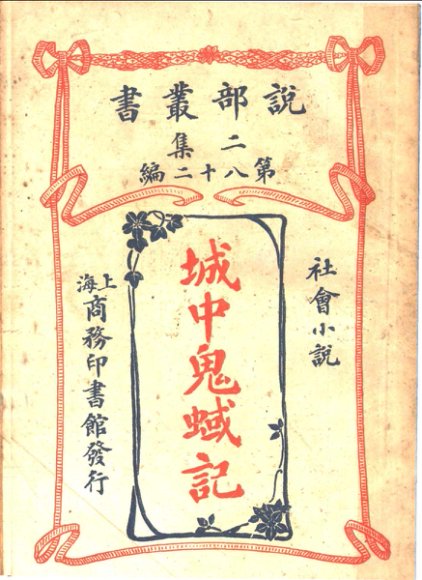 說部叢書
二集
第八十二編
社會小說
城中鬼蜮記
上海
商務印書館發行